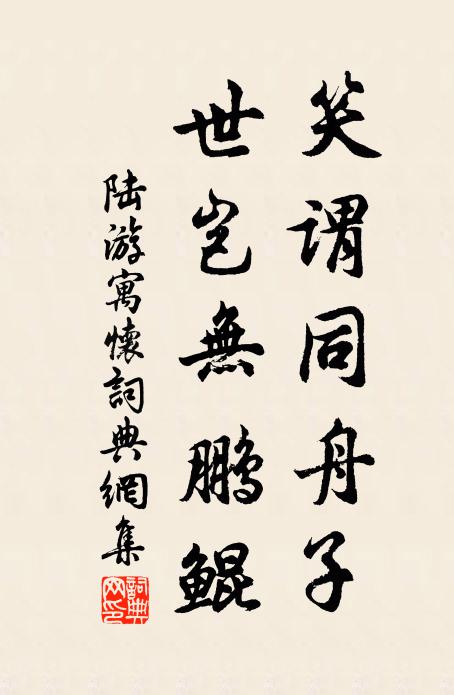 笑謂同舟子
世岂無鹏鲲
陆游寓懷詞典網集
詞典网印